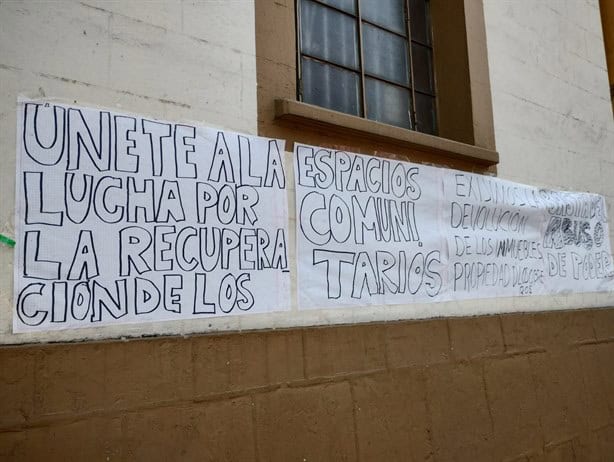 ÚNETE A LA
LUCHA POR
LA RECUPERA
CIÓN DE LOS
ESPACIOS
COMUNI.
TARIOS
DEVOLUCIÓN
DE LOS INMUEBLES
PROPIEDAD
ABUSO
DE PODER